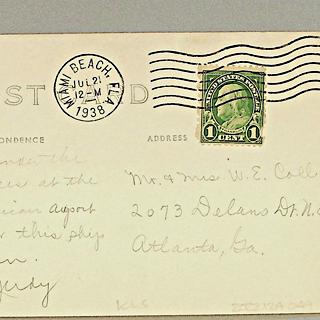 MIAMI BEACH, FLA.
JUL 21
12-M
1938
ST CARD
UNITED STATES POSTAGE
1 CENT 1
ONDENCE
ADDRESS
under the
at the
airport
this ship
Mr. & Mrs. W. E. Coll
2073 Delano Dr. N.
Atlanta, Ga.
KLS